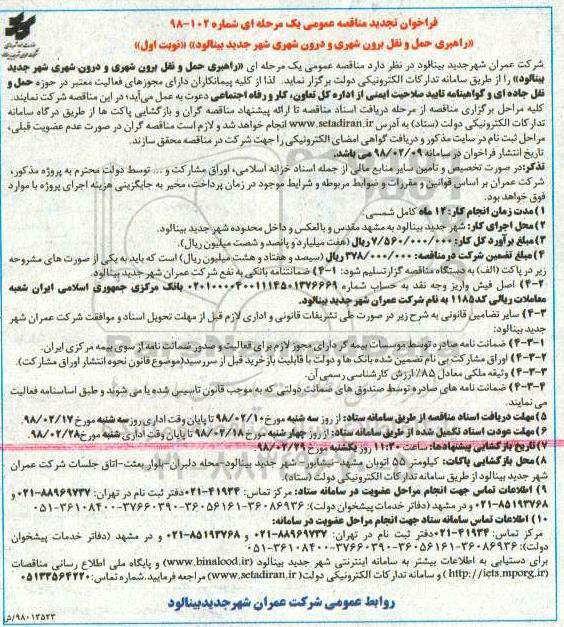 فراخوان تجدید مناقصه عمومی یک مرحله ای شماره ۱۰۲-۹۸
«راهبری حمل و نقل برون شهری و درون شهری شهر جدید بینالود» «نوبت اول»
شرکت عمران شهرجدید بینالود در نظر دارد مناقصه عمومی یک مرحله ای «راهبری حمل و نقل برون شهری و درون شهری شهر جدید
بینالود» را از طریق سامانه تدارکات الکترونیکی دولت برگزار نماید. لذا از کلیه پیمانکاران دارای مجوزهای فعالیت معتبر در حوزه حمل و
نقل جاده ای و گواهینامه تایید صلاحیت ایمنی از اداره کل تعاون، کار و رفاه اجتماعی دعوت به عمل می‌آید؛ در این مناقصه شرکت نمایند.
کلیه مراحل برگزاری مناقصه از مرحله دریافت اسناد مناقصه تا ارائه پیشنهاد مناقصه گران و بازگشایی پاکت ها از طریق درگاه سامانه
تدارکات الکترونیکی دولت (ستاد) به آدرس www.setadiran.ir انجام خواهد شد و لازم است مناقصه گران در صورت عدم عضویت قبلی،
مراحل ثبت نام در سایت مذکور و دریافت گواهی امضای الکترونیکی را جهت شرکت در مناقصه محقق سازند.
تاریخ انتشار فراخوان در سامانه ۹۸/۰۲/۰۹ می باشد.
تذکر: در صورت تخصیص و تأمین سایر منابع مالی از جمله اسناد خزانه اسلامی، اوراق مشارکت و ... توسط دولت محترم به پروژه مذکور،
شرکت عمران بر اساس قوانین و مقررات و ضوابط مربوطه و شرایط موجود در زمان پرداخت، مخیر به جایگزینی هزینه اجرای پروژه با موارد
فوق خواهد بود.
۱) مدت زمان انجام کار: ۱۲ ماه کامل شمسی.
۲) محل اجرای کار: شهر جدید بینالود به مشهد مقدس و بالعکس و داخل محدوده شهر جدید بینالود.
۳) مبلغ برآورد کل کار: ۷/۵۶۰/۰۰۰/۰۰۰ ریال (هفت میلیارد و پانصد و شصت میلیون ریال).
۴) مبلغ تضمین شرکت در مناقصه: ۳۷۸/۰۰۰/۰۰۰ ریال (سیصد و هفتاد و هشت میلیون ریال) است که باید به یکی از صورت های مشروحه
زیر در پاکت (الف) به دستگاه مناقصه گزار تسلیم شود: ۱-۴) ضمانتنامه بانکی به نفع شرکت عمران شهر جدید بینالود.
۲-۴) اصل فیش واریز وجه نقد به حساب شماره بانک مرکزی جمهوری اسلامی ایران شعبه
معاملات ریالی کد ۱۱۸۵ به نام شرکت عمران شهر جدید بینالود.
۳-۴) سایر تضامین قانونی به شرح زیر در صورت طی تشریفات قانونی و اداری لازم قبل از مهلت تحویل اسناد و موافقت شرکت عمران شهر
جدید بینالود:
۱-۳-۴) ضمانت نامه صادره توسط موسسات بیمه گر دارای مجوز لازم برای فعالیت و صدور ضمانت نامه از سوی بیمه مرکزی ایران.
۲-۳-۴) اوراق مشارکت بی نام تضمین شده بانک ها و دولت با قابلیت باز خرید قبل از سررسید (موضوع قانون نحوه انتشار اوراق مشارکت).
۳-۳-۴) وثیقه ملکی معادل ۸۵٪ ارزش کارشناسی رسمی آن.
۴-۳-۴) ضمانت نامه های صادره توسط صندوق های ضمانت دولتی که به موجب قانون تاسیس شده یا می شوند و طبق اساسنامه فعالیت
می نمایند.
۵) مهلت دریافت اسناد مناقصه از طریق سامانه ستاد: از روز سه شنبه مورخ ۹۸/۰۲/۱۰ تا پایان وقت اداری روز سه شنبه مورخ ۹۸/۰۲/۱۷.
۶) مهلت عودت اسناد تکمیل شده از طریق سامانه ستاد: از روز چهار شنبه مورخ ۹۸/۰۲/۱۸ تا پایان وقت اداری شنبه مورخ ۹۸/۰۲/۲۸.
۷) تاریخ بازگشایی پیشنهادها: ساعت ۱۱:۳۰ روز یکشنبه مورخ ۹۸/۰۲/۲۹
۸) محل بازگشایی پاکات: کیلومتر ۵۵ اتوبان مشهد-نیشابور- شهر جدید بینالود-محله دلبران-بلوار بعثت-اتاق جلسات شرکت عمران
شهر جدید بینالود از طریق سامانه تدارکات الکترونیکی دولت (ستاد).
۹) اطلاعات تماس جهت انجام مراحل عضویت در سامانه ستاد: مرکز تماس: ۴۱۹۳۴-۰۲۱ دفتر ثبت نام در تهران: ۸۸۹۶۹۷۳۷-۰۲۱ و
۸۵۱۹۳۷۶۸-۰۲۱ و در مشهد (دفاتر خدمات پیشخوان دولت): ۳۶۰۸۶۹۳۶-۳۶۱۵۶۰۳۶-۳۷۶۶۰۳۹۰-۳۶۱۰۸۴۰۰-۰۵۱
۱۰) اطلاعات تماس سامانه ستاد جهت انجام مراحل عضویت در سامانه:
مرکز تماس: ۴۱۹۳۴-۰۲۱ دفتر ثبت نام در تهران: ۸۸۹۶۹۷۳۷-۰۲۱ و ۸۵۱۹۳۷۶۸-۰۲۱ و در مشهد (دفاتر خدمات پیشخوان
دولت): ۳۶۰۸۶۹۳۶-۳۶۱۵۶۰۳۶-۳۷۶۶۰۳۹۰-۳۶۱۰۸۴۰۰-۰۵۱
برای دستیابی به اطلاعات بیشتر به سامانه اینترنتی شهر جدید بینالود (www.binalood.ir) و پایگاه ملی اطلاع رسانی مناقصات
(http://iets.mporg.ir) و سامانه تدارکات الکترونیکی دولت (www.setadiran.ir) مراجعه فرمایید. شماره تماس: ۰۵۱۳۳۵۶۴۲۲۰
روابط عمومی شرکت عمران شهرجدیدبینالود
۹۸۰۱۳۵۲۳/ش